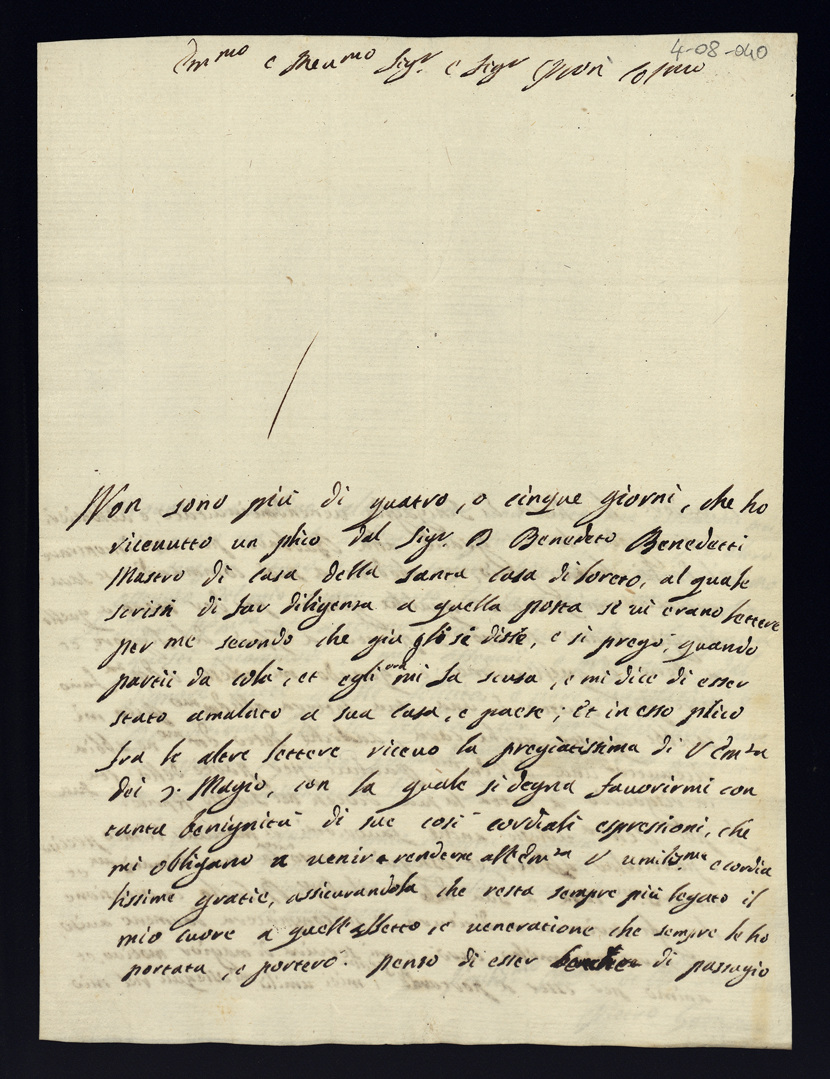 4-08-040
Em.mo e Reu.mo Sig.r e Sig.r Pron Col.mo
Non sono più di quatro, o cinque giorni, che ho
riceuutto un plico dal Sig.r D Benedeto Benedetti
Mastro di casa della santa casa di loreto, al quale
scrissi di far diligenza a quella posta se ui erano lettere
per me secondo che gia gli si disse, e si pregò, quando
partii da colà, et egli ora mi fa scusa, e mi dice di esser
stato amalato a sua casa, e paese; Et in esso plico
fra le altre lettere riceuo la pregiatissima di V Em.za
dei 7. Magio, con la quale si degna fauorirmi con
tanta benignità di sue così cordiali espressioni, che
mi obligano a uenir a renderne all'Em.za V umiliss.me e cordia
lissime gratie, assicurandola che resta sempre più legato il
mio cuore a quell'affetto, e ueneratione che sempre le ho
portata, e porterò. Penso di esser di passagio